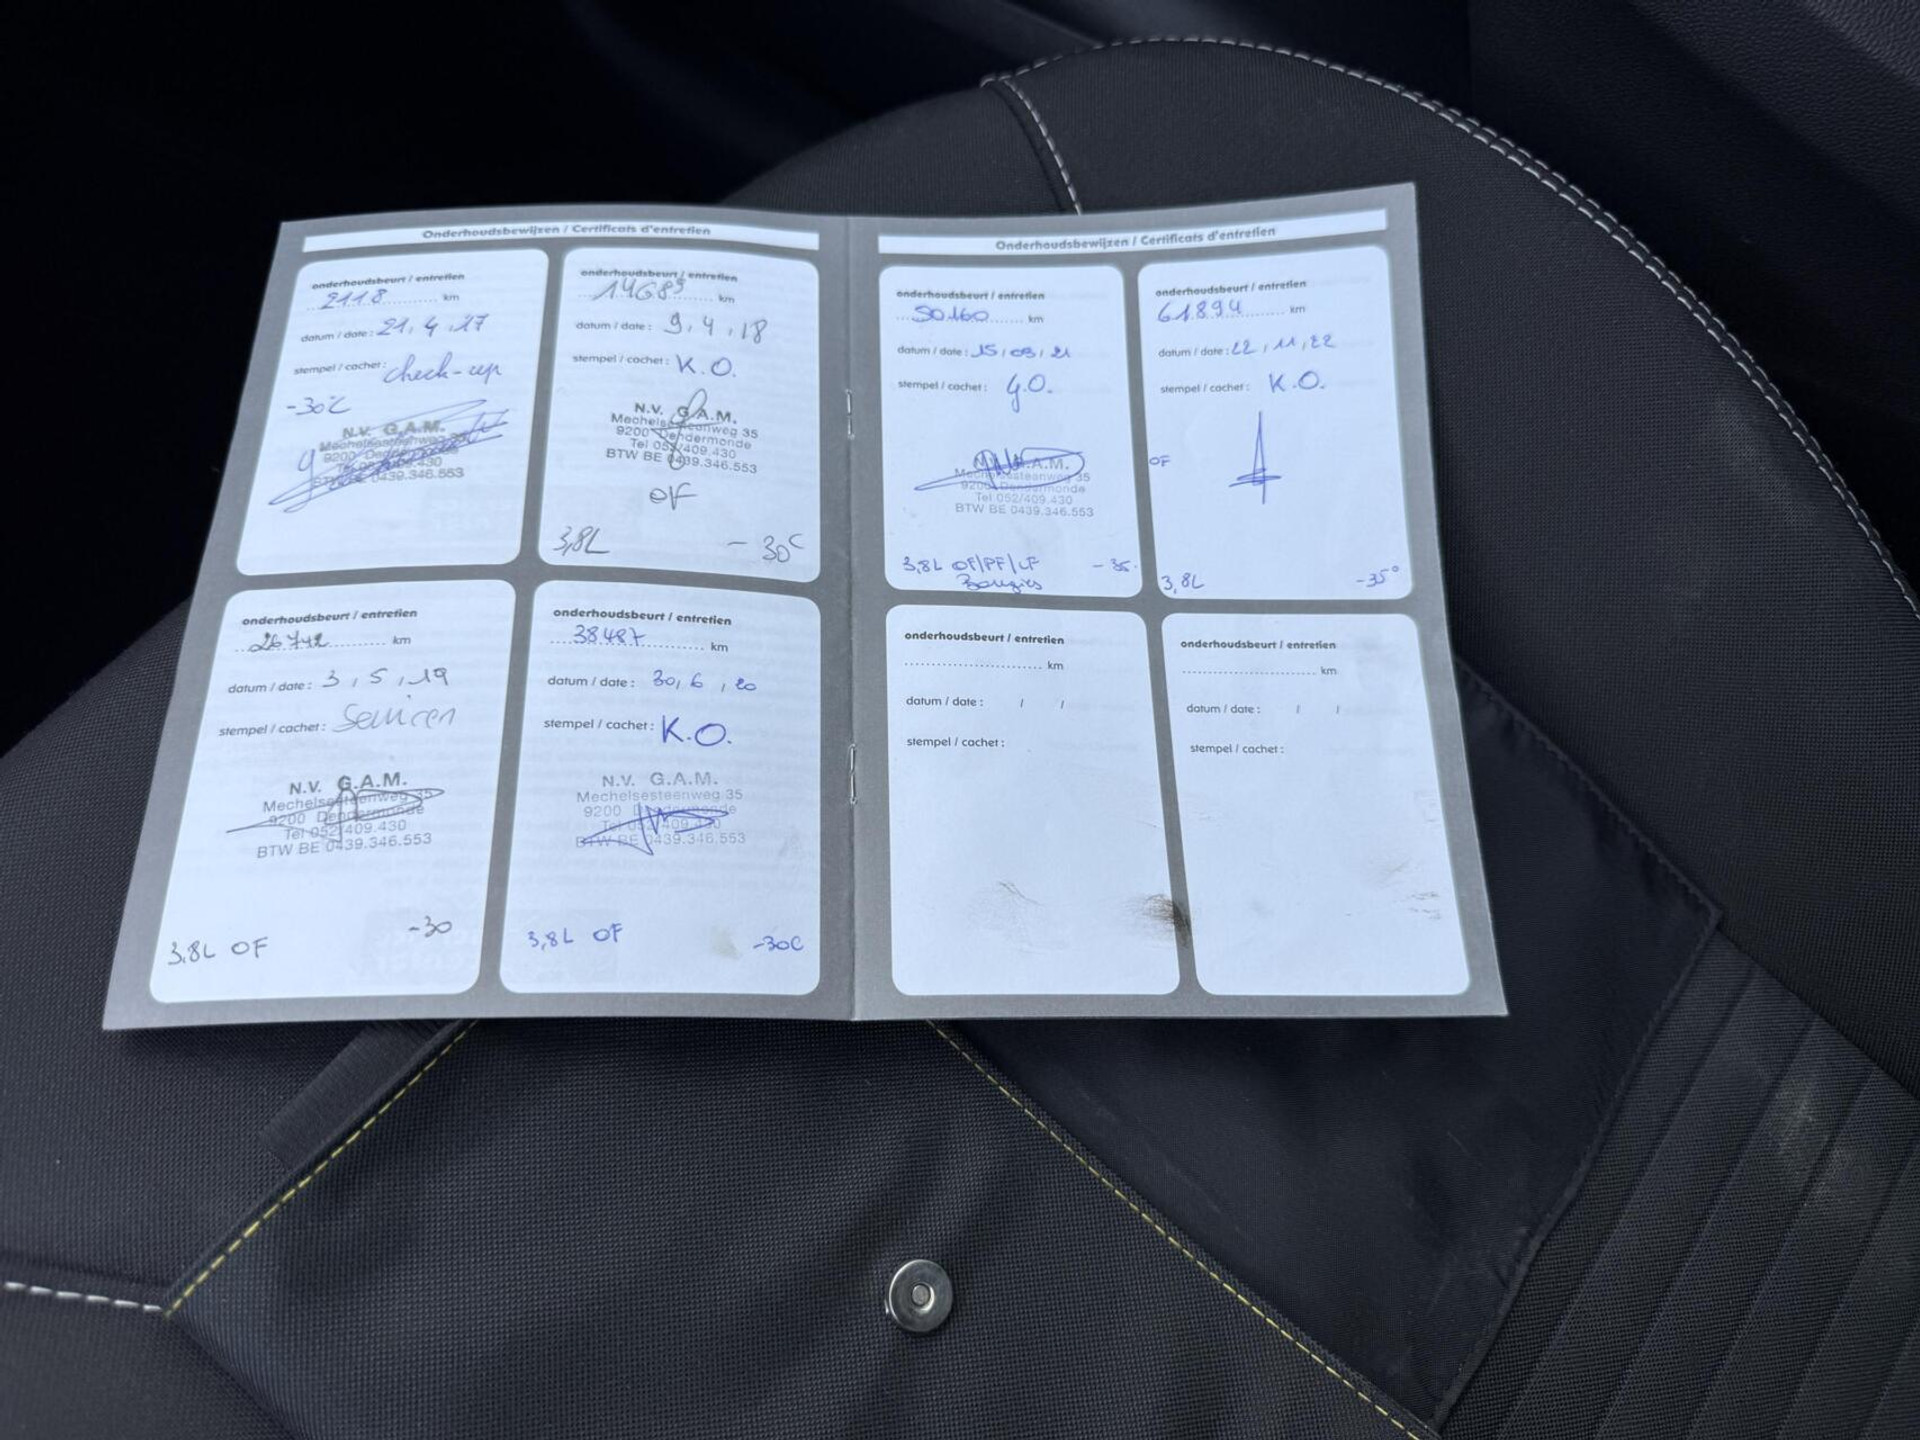 Onderhoudsbewijzen / Certificats d'entretien
onderhoudsbeurt / entretien
2118 km
datum / date : 21, 4, 17
stempel / cachet : check-up
-30°C
N.V. G.A.M.
Mechelsesteenweg 35
9200 Dendermonde
Tel 052/409.430
BTW BE 0439.346.553
onderhoudsbeurt / entretien
14689 km
datum / date : 9, 4, 18
stempel / cachet : K.O.
N.V. G.A.M.
Mechelsesteenweg 35
9200 Dendermonde
Tel 052/409.430
BTW BE 0439.346.553
OF
3,8L -30C
onderhoudsbeurt / entretien
26742 km
datum / date : 3, 5, 19
stempel / cachet :
N.V. G.A.M.
Mechelsesteenweg 35
9200 Dendermonde
Tel 052/409.430
BTW BE 0439.346.553
3,8L OF -30
onderhoudsbeurt / entretien
38.487 km
datum / date : 30, 6, 20
stempel / cachet : K.O.
N.V. G.A.M.
Mechelsesteenweg 35
9200 Dendermonde
Tel 052/409.430
BTW BE 0439.346.553
3,8L OF -30C
Onderhoudsbewijzen / Certificats d'entretien
onderhoudsbeurt / entretien
50.160 km
datum / date : 15, 09, 21
stempel / cachet : G.O.
N.V. G.A.M.
Mechelsesteenweg 35
9200 Dendermonde
Tel 052/409.430
BTW BE 0439.346.553
3,8L OF/PF/LF -35.
Bougies
onderhoudsbeurt / entretien
61894 km
datum / date : 22, 11, 22
stempel / cachet : K.O.
OF
3,8L -35°
onderhoudsbeurt / entretien
km
datum / date : / /
stempel / cachet :
onderhoudsbeurt / entretien
km
datum / date : / /
stempel / cachet :